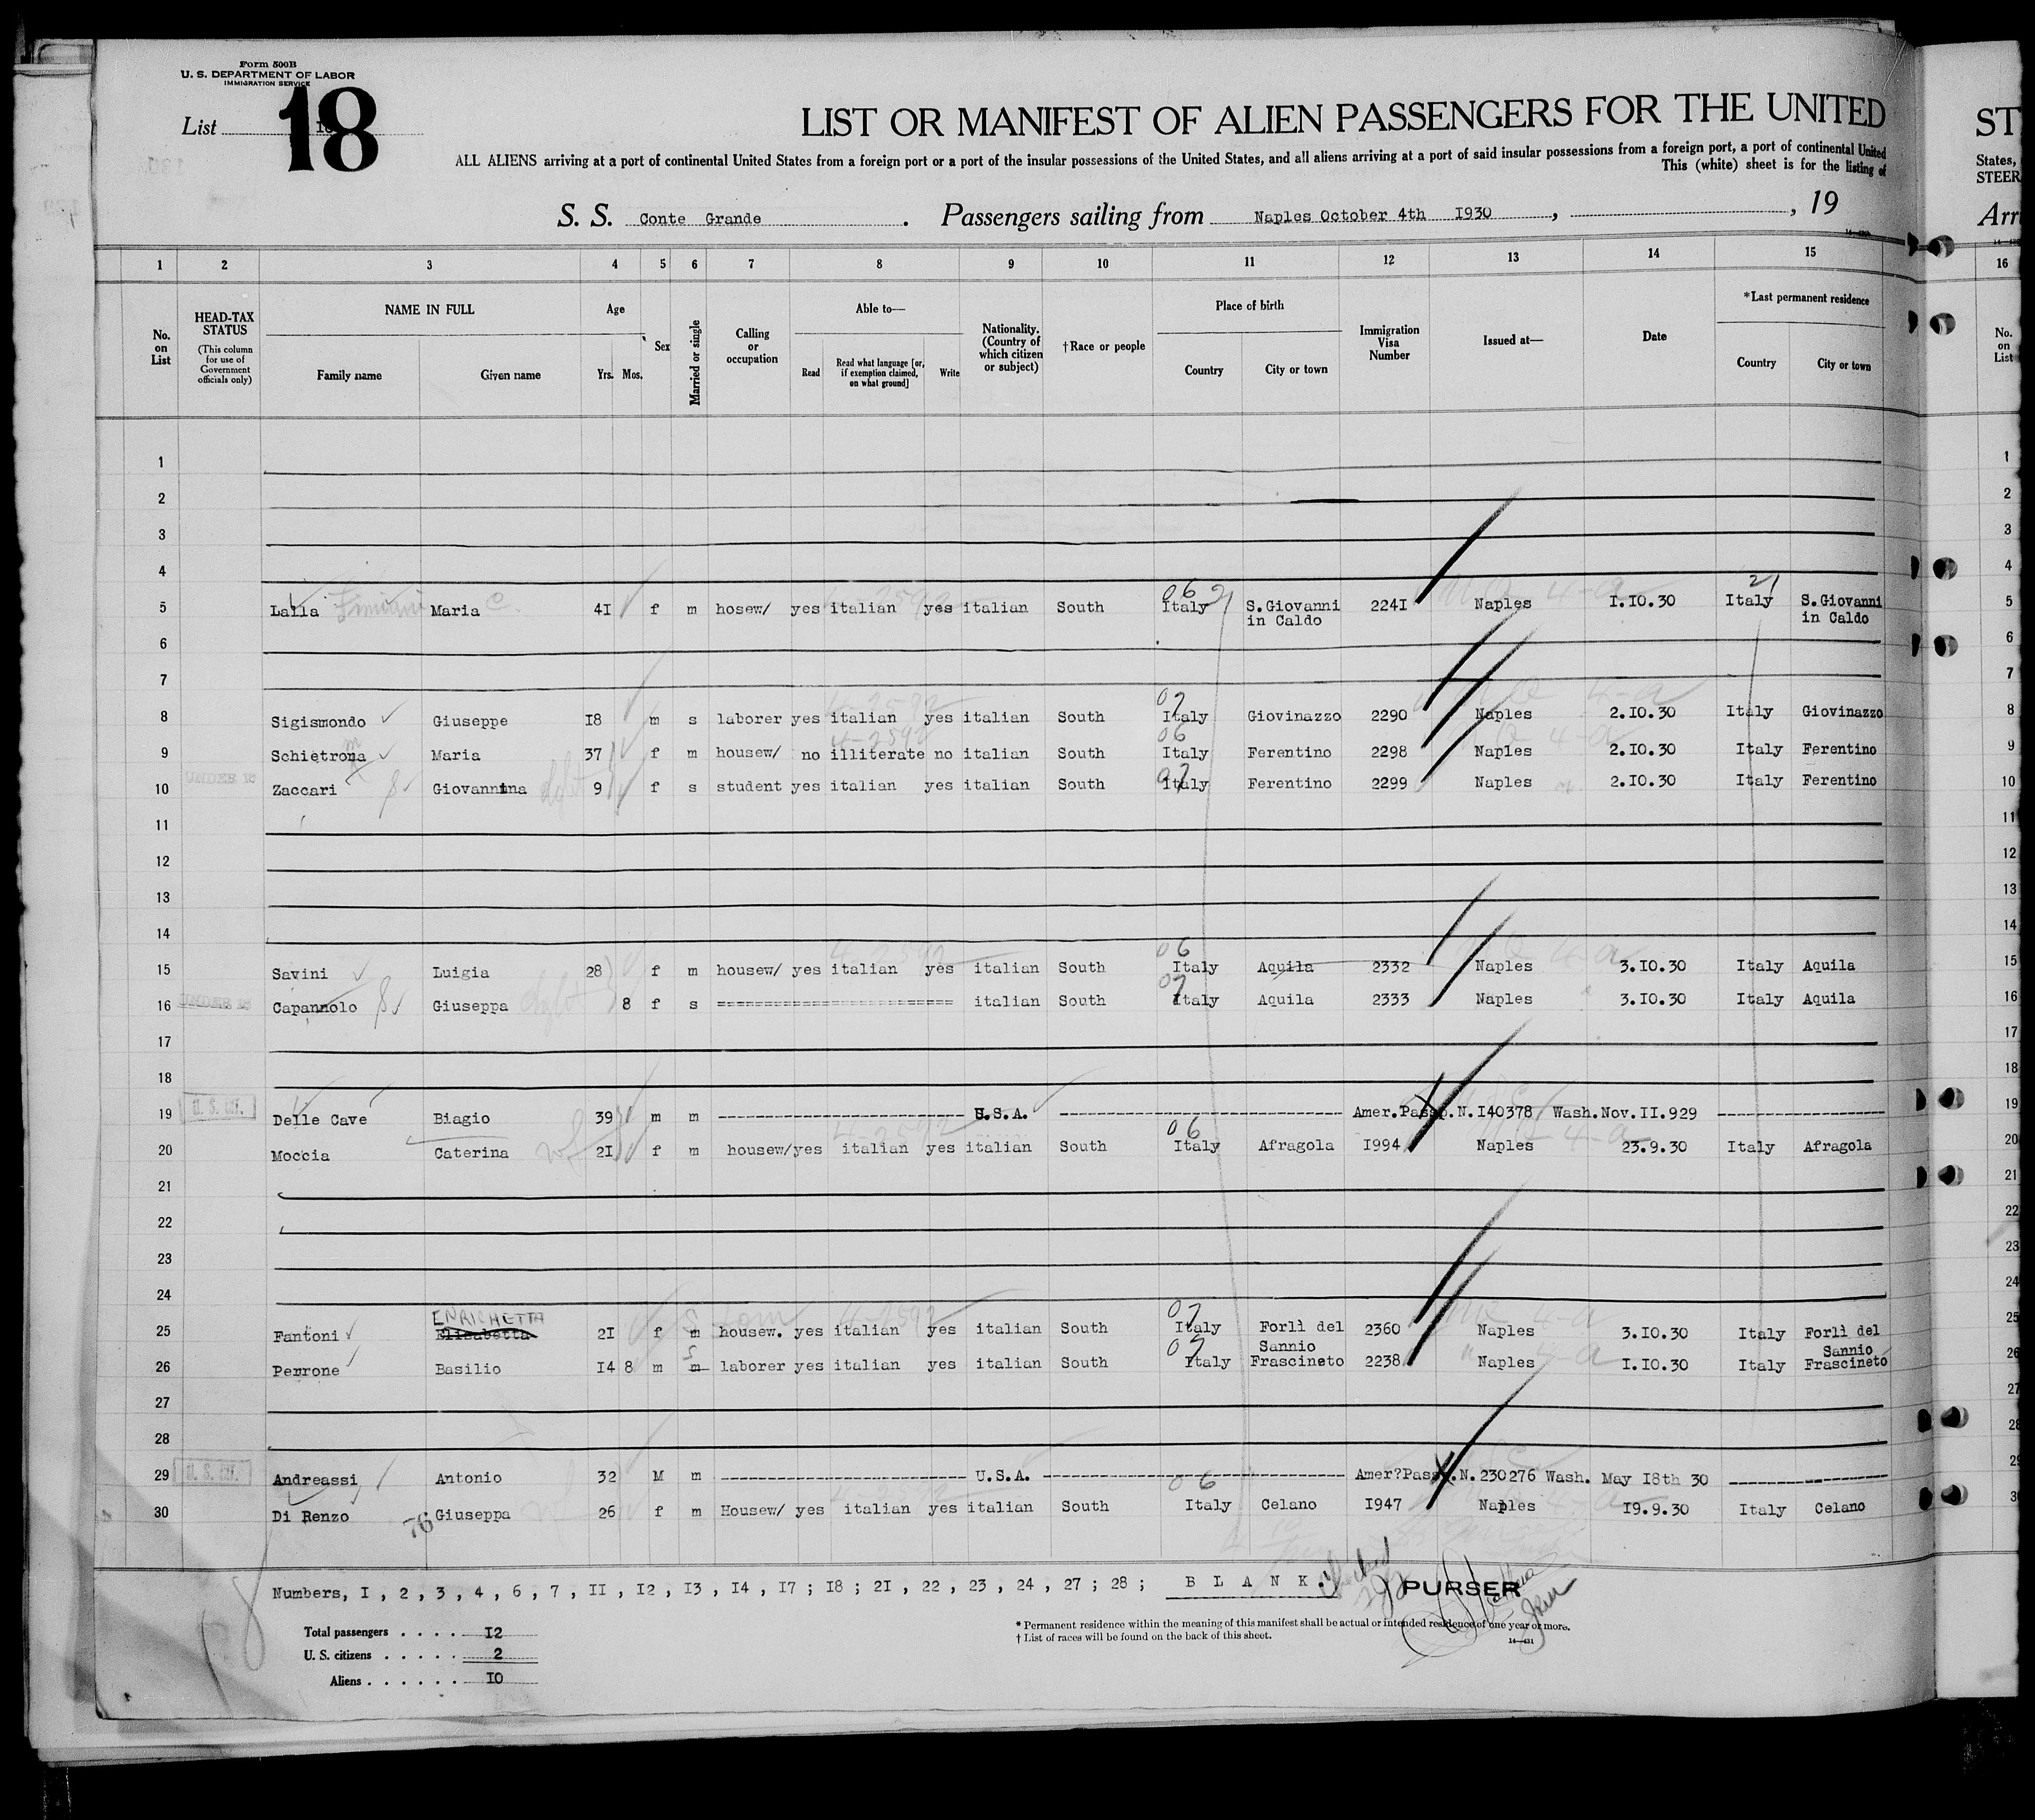 Form 500B
U. S. DEPARTMENT OF LABOR
IMMIGRATION SERVICE
List 18
LIST OR MANIFEST OF ALIEN PASSENGERS FOR THE UNITED
ST
ALL ALIENS arriving at a port of continental United States from a foreign port or a port of the insular possessions of the United States, and all aliens arriving at a port of said insular possessions from a foreign port, a port of continental United
States,
This (white) sheet is for the listing of
STEER
S. S. Conte Grande . Passengers sailing from Naples October 4th I930 , , 19
Arr
1 2 3 4 5 6 7 8 9 10 11 12 13 14 15 16
No. on List
HEAD-TAX STATUS
(This column for use of Government officials only)
NAME IN FULL
Family name Given name
Age
Yrs. Mos.
Sex
Married or single
Calling or occupation
Able to—
Read
Read what language [or, if exemption claimed, on what ground]
Write
Nationality. (Country of which citizen or subject)
†Race or people
Place of birth
Country City or town
Immigration Visa Number
Issued at—
Date
*Last permanent residence
Country City or town
No. on List
1 1
2 2
3 3
4 4
06 21
5 Lalla Maria C. 4I f m hosew/ yes italian yes italian South Italy S.Giovanni 224I Naples I.IO.30 Italy S.Giovanni 5
in Caldo in Caldo
6 6
7 7
4-2592 4-a
07
8 Sigismondo Giuseppe I8 m s laborer yes italian yes italian South Italy Giovinazzo 2290 Naples 2.IO.30 Italy Giovinazzo 8
4-2592 06 4-a
9 Schietroma Maria 37 f m housew/ no illiterate no italian South Italy Ferentino 2298 Naples 2.IO.30 Italy Ferentino 9
UNDER 16
07
10 Zaccari Giovannina 9 f s student yes italian yes italian South Italy Ferentino 2299 Naples 2.IO.30 Italy Ferentino 10
11 11
12 12
13 13
14 14
4-2592 06 4-a
15 Savini Luigia 28 f m housew/ yes italian yes italian South Italy Aquila 2332 Naples 3.IO.30 Italy Aquila 15
UNDER 16
07
16 Capannolo Giuseppa 8 f s ========================= italian South Italy Aquila 2333 Naples 3.IO.30 Italy Aquila 16
17 17
18 18
U. S. cit.
19 Delle Cave Biagio 39 m m -------------------------- U.S.A. ------------------------------ Amer.Passp.N.I40378 Wash.Nov.II.929 ------------------ 19
4-2592 06 4-a
20 Moccia Caterina wf 2I f m housew/yes italian yes italian South Italy Afragola I994 Naples 23.9.30 Italy Afragola 20
21 21
22 22
23 23
24 24
ENRICHETTA 4-2592 07 4-a
25 Fantoni Elisabetta 2I f m housew. yes italian yes italian South Italy Forlì del 2360 Naples 3.IO.30 Italy Forlì del 25
Sannio Sannio
s 07 4-a
26 Perrone Basilio I4 8 m m laborer yes italian yes italian South Italy Frascineto 2238 Naples I.IO.30 Italy Frascineto 26
27 27
28 28
U. S. cit.
29 Andreassi Antonio 32 M m -------------------------- U.S.A. ------------------------------ Amer?Passp.N.230276 Wash. May I8th 30 ------------------ 29
06 4-a
30 Di Renzo 76 Giuseppa 26 f m Housew/ yes italian yes italian South Italy Celano I947 Naples I9.9.30 Italy Celano 30
Numbers, I , 2 , 3 , 4 , 6 , 7 , II , I2 , I3 , I4 , I7 ; I8 ; 2I , 22 , 23 , 24 , 27 ; 28 ; B L A N K.
PURSER
Total passengers . . . . I2
U. S. citizens . . . . . 2
Aliens . . . . . . IO
* Permanent residence within the meaning of this manifest shall be actual or intended residence of one year or more.
† List of races will be found on the back of this sheet.
14—431